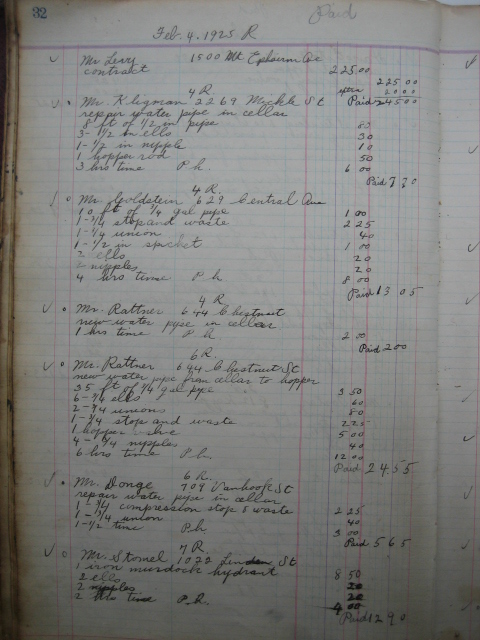 32
Paid
Feb. 4. 1925 R
Mr Levy 1500 Mt Ephraim Ave
contract 225 00
225 00
20 00
4 R. Paid 245 00
Mr. Kligman 2269 Mickle St
repair water pipe in cellar
8 ft of 1/2 in pipe 80
3 - 1/2 in ells 30
1 - 1/2 in nipple 10
1 hopper rod 50
3 hrs time P.h. 6 00
Paid 7 70
4 R.
Mr Goldstein 629 Central Ave
10 ft of 3/4 gal pipe 1 00
1 - 3/4 stop and waste 2 25
1 - 3/4 union 40
1 - 1/2 in spicket 1 00
2 ells 20
2 nipples 20
4 hrs time P.h 8 00
Paid 13 05
4 R
Mr. Rattner 644 Chestnut
new water pipe in cellar
1 hrs time P h 2 00
Paid 2 00
6 R.
Mr. Rattner 644 Chestnut St
new water pipe from cellar to hopper
35 ft of 3/4 gal pipe 3 50
6 - 3/4 ells 60
2 - 3/4 unions 80
1 - 3/4 stop and waste 2 25
1 hopper 5 00
4 - 3/4 nipples 40
6 hrs time P.h. 12 00
Paid 24 55
6 R.
Mr. Donge 709 Vanhook St
repair water pipe in cellar
1 - 3/4 compression stop & waste 2 25
1 - 3/4 union 40
1 - 1/2 time P.h. 3 00
Paid 5 65
7 R.
Mr. Stomel 1022 Linden St
1 iron murdock hydrant 8 50
2 ells 20
2 nipples 20
2 hrs time P.h. 4 00
Paid 12 90